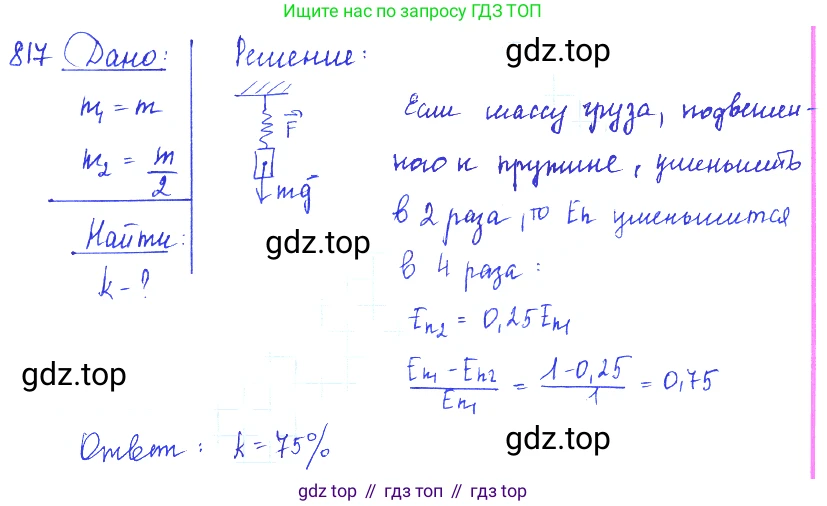 Ищите нас по запросу ГДЗ ТОП
817 Дано:
m₁ = m
m₂ = m/2
Найти:
k - ?
Решение:
F⃗
mg⃗
gdz.top
gdz.top
Если массу груза, подвешен-
ного к пружине, уменьшить
в 2 раза, то Eп уменьшится
в 4 раза:
Eп₂ = 0,25Eп₁
(Eп₁ - Eп₂)/Eп₁ = (1-0,25)/1 = 0,75
gdz.top
Ответ: k = 75%
gdz.top
gdz top // гдз топ // гдз top